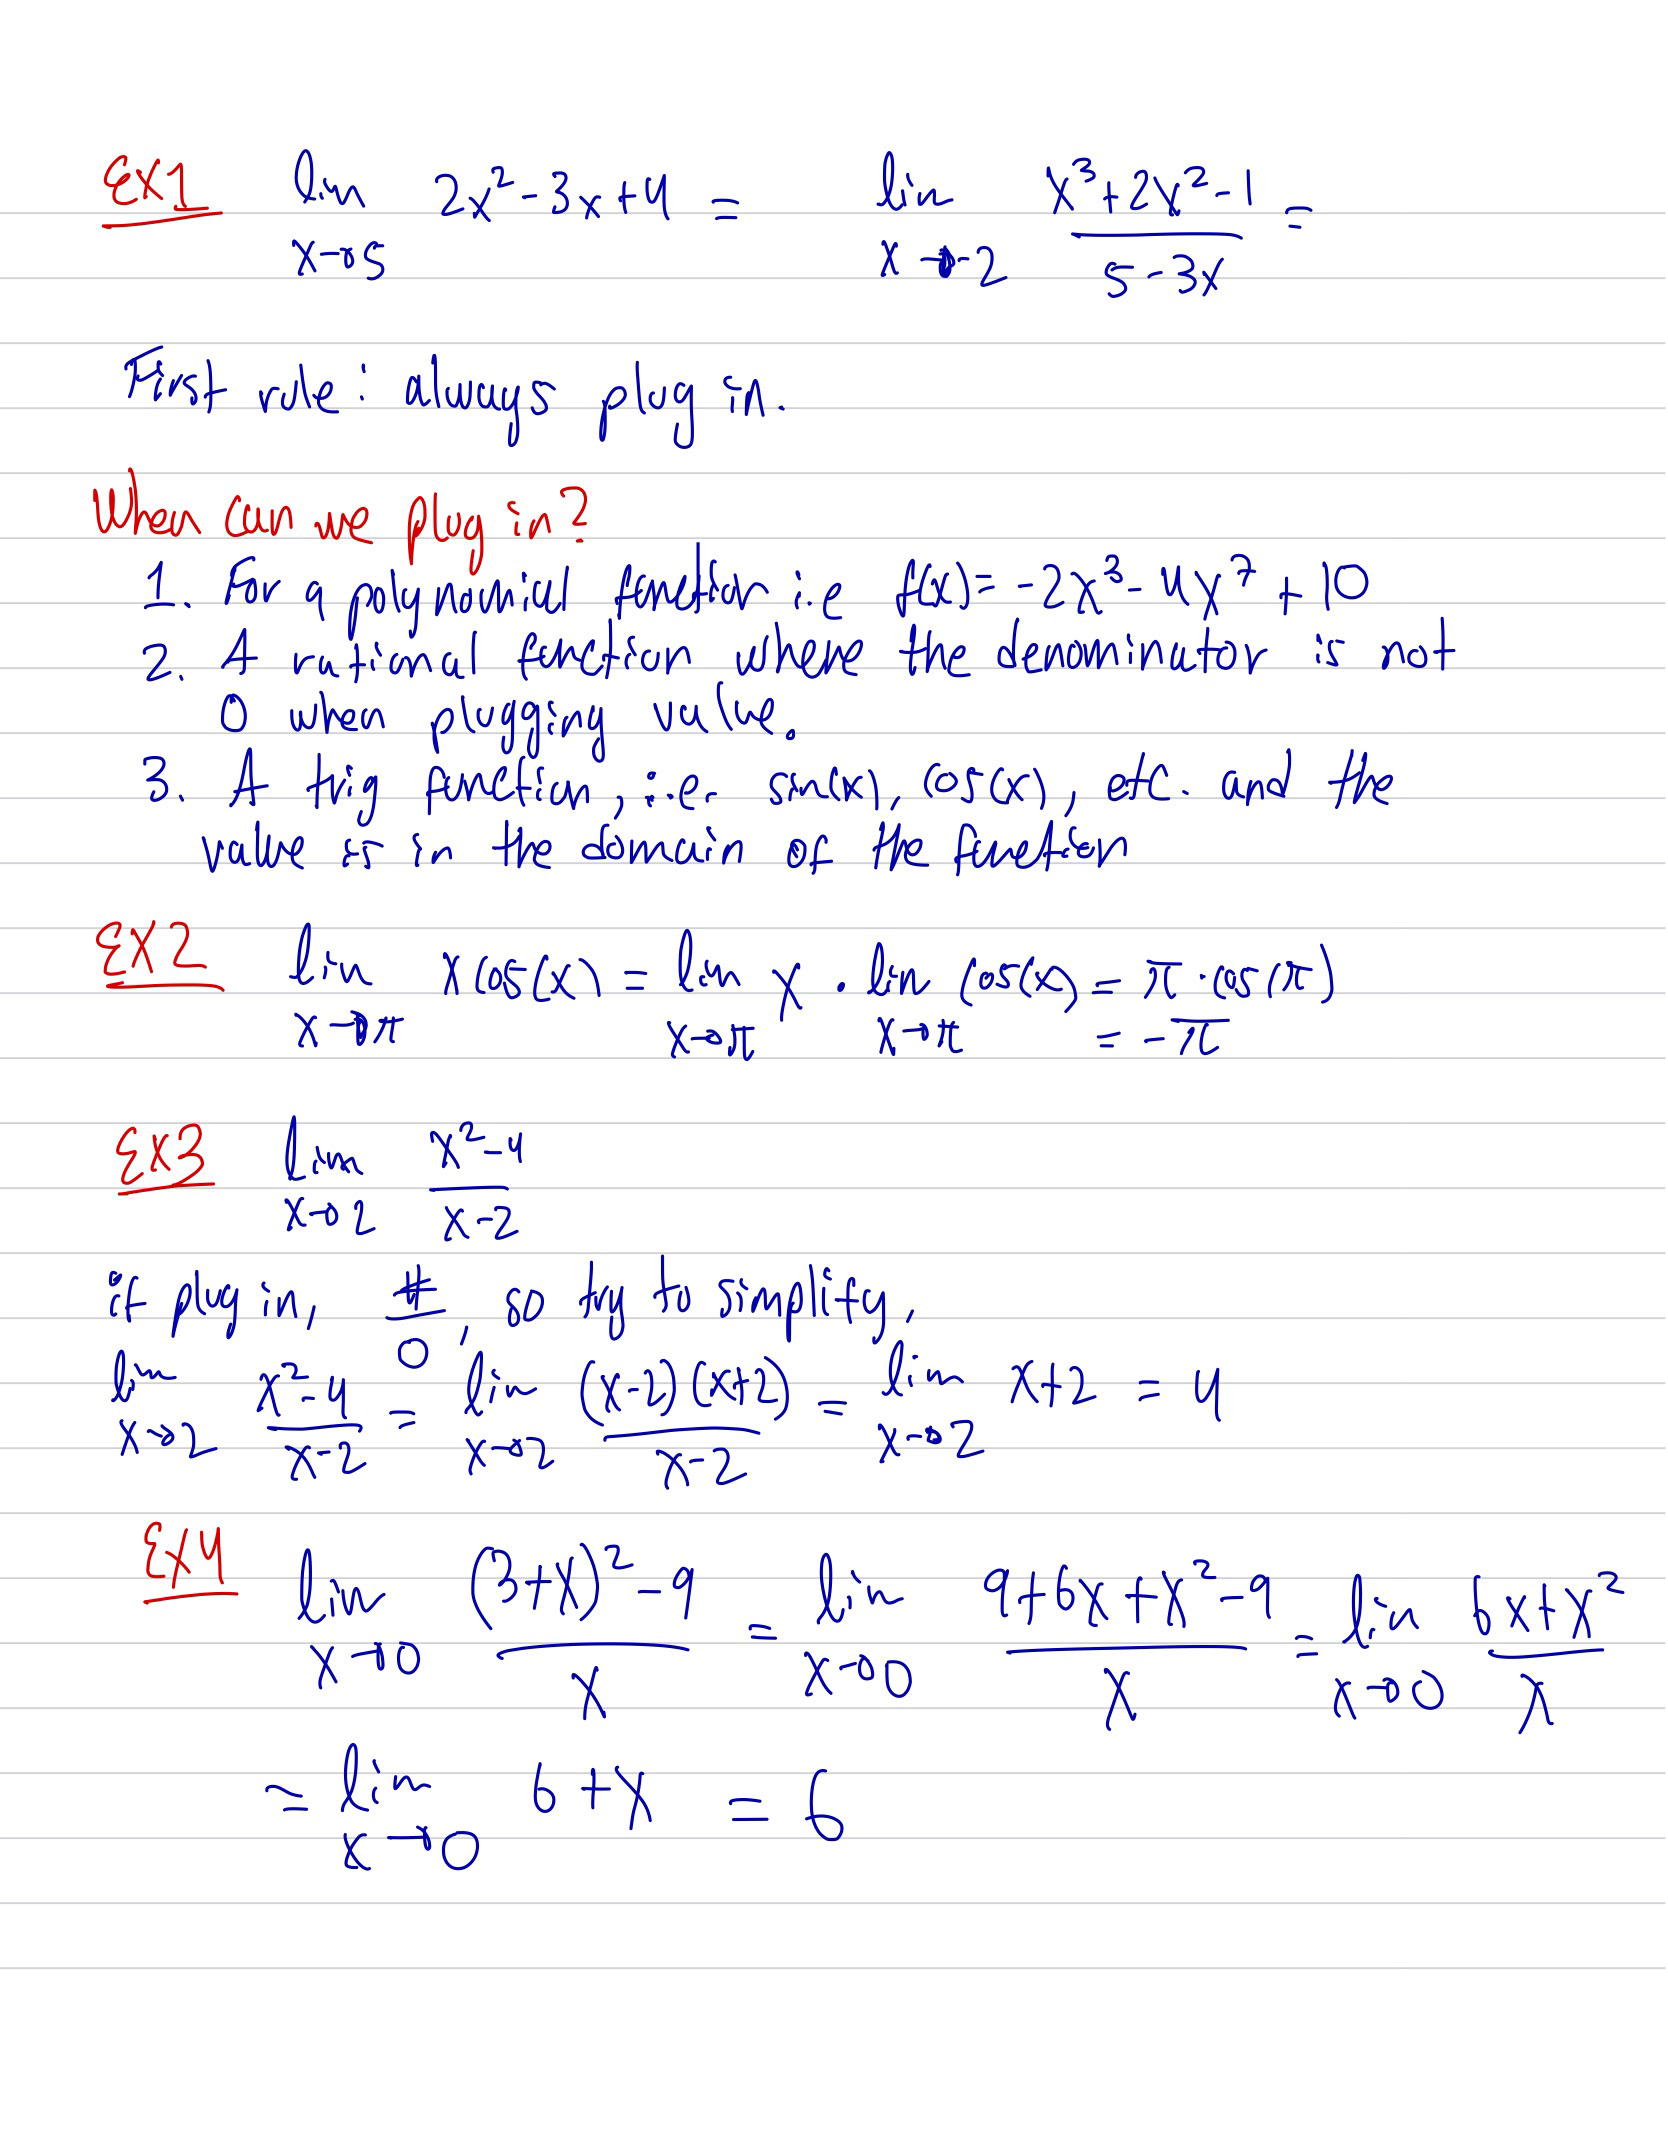 EX1 lim 2x²-3x+4 = lim x³+2x²-1 =
x→5 x→-2 5-3x
First rule: always plug in.
When can we plug in?
1. For a polynomial function i.e f(x)= -2x³-4x⁷+10
2. A rational function where the denominator is not
0 when plugging value.
3. A trig function, i.e. sin(x), cos(x), etc. and the
value is in the domain of the function
EX2 lim x cos(x) = lim x · lim cos(x) = π·cos(π)
x→π x→π x→π = -π
EX3 lim x²-4
x→2 x-2
if plug in, #/0, so try to simplify,
lim x²-4 = lim (x-2)(x+2) = lim x+2 = 4
x→2 x-2 x→2 x-2 x→2
EX4 lim (3+x)²-9 = lim 9+6x+x²-9 = lim 6x+x²
x→0 x x→0 x x→0 x
= lim 6+x = 6
x→0